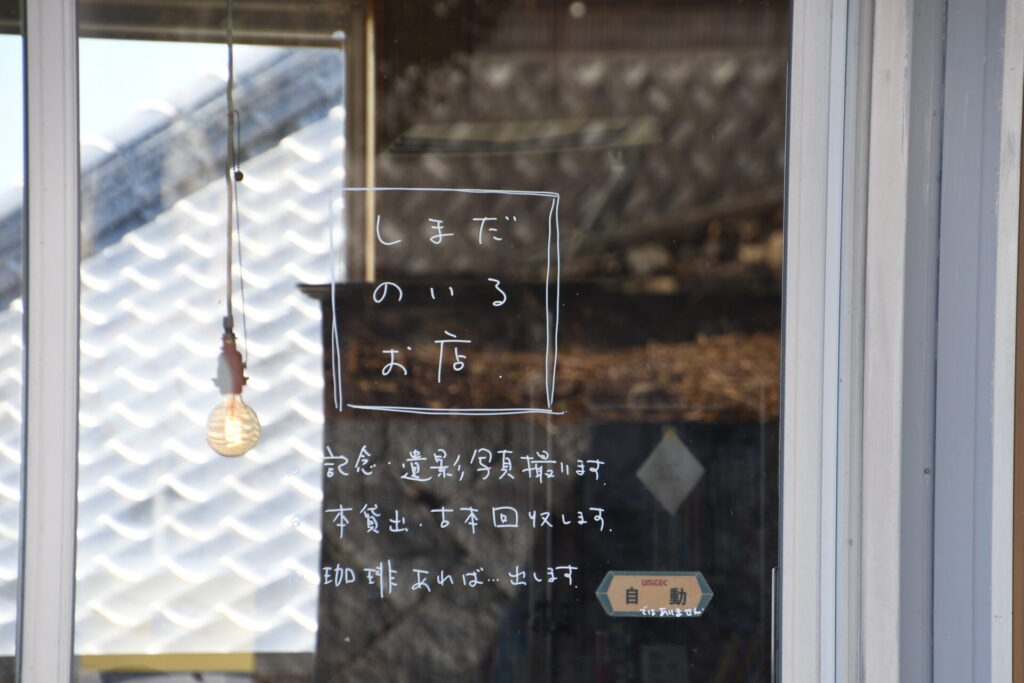 しまだ
のいる
お店.
記念・遺影写真撮ります.
本貸出・古本回収します.
珈琲あれば…出します.
UNITEC
自動
ではありません.